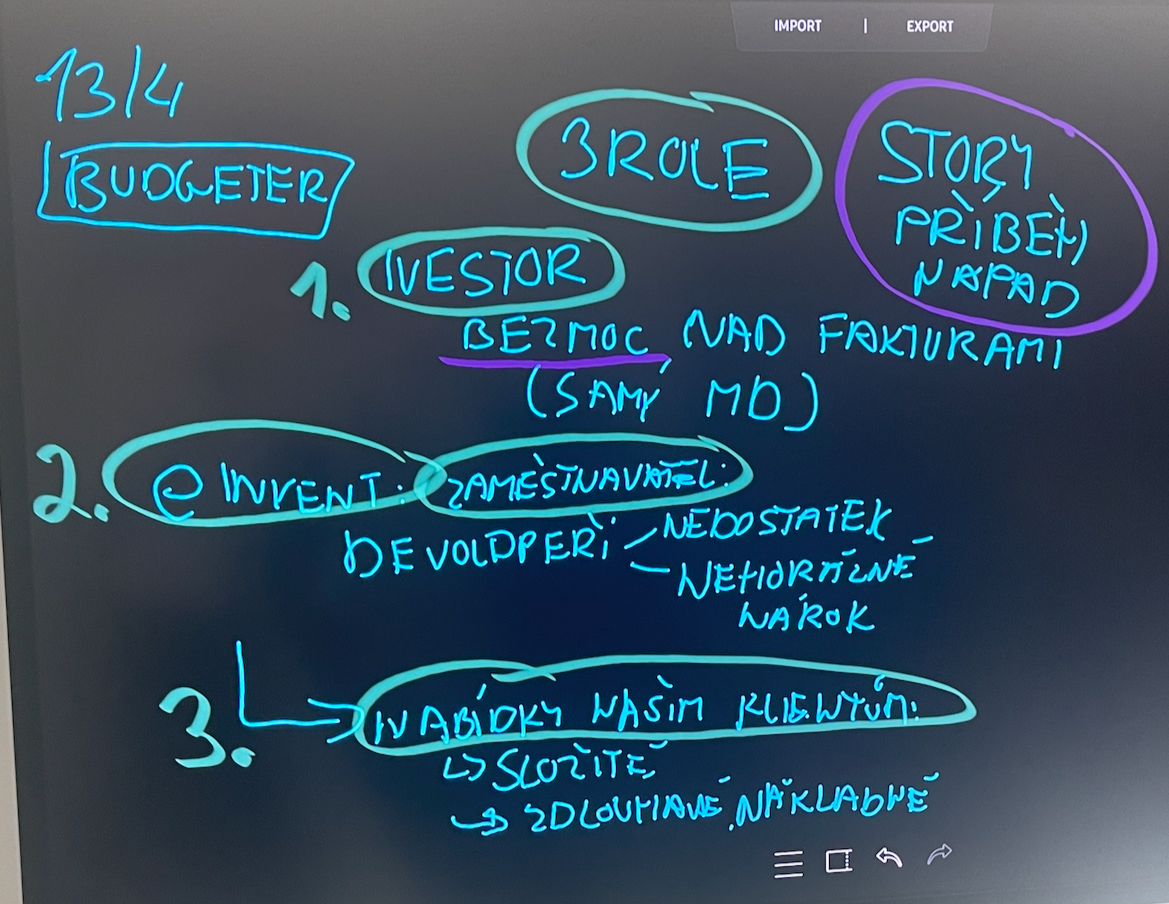 IMPORT | EXPORT
13/4
BUDGETER
3 ROLE
STORY
PŘÍBĚH
NÁPAD
1. IVESTOR
BEZMOC NAD FAKTURAMI
(SAMÝ MD)
2. e INVENT: ZAMĚSTNAVATEL:
DEVOLOPEŘI
NEDOSTATEK
NEHORÁZNÉ
NÁROK
3. NABÍDKY NAŠIM KLIENTŮM:
↳ SLOŽITÉ
→ ZDLOUHAVÉ, NÁKLADNÉ